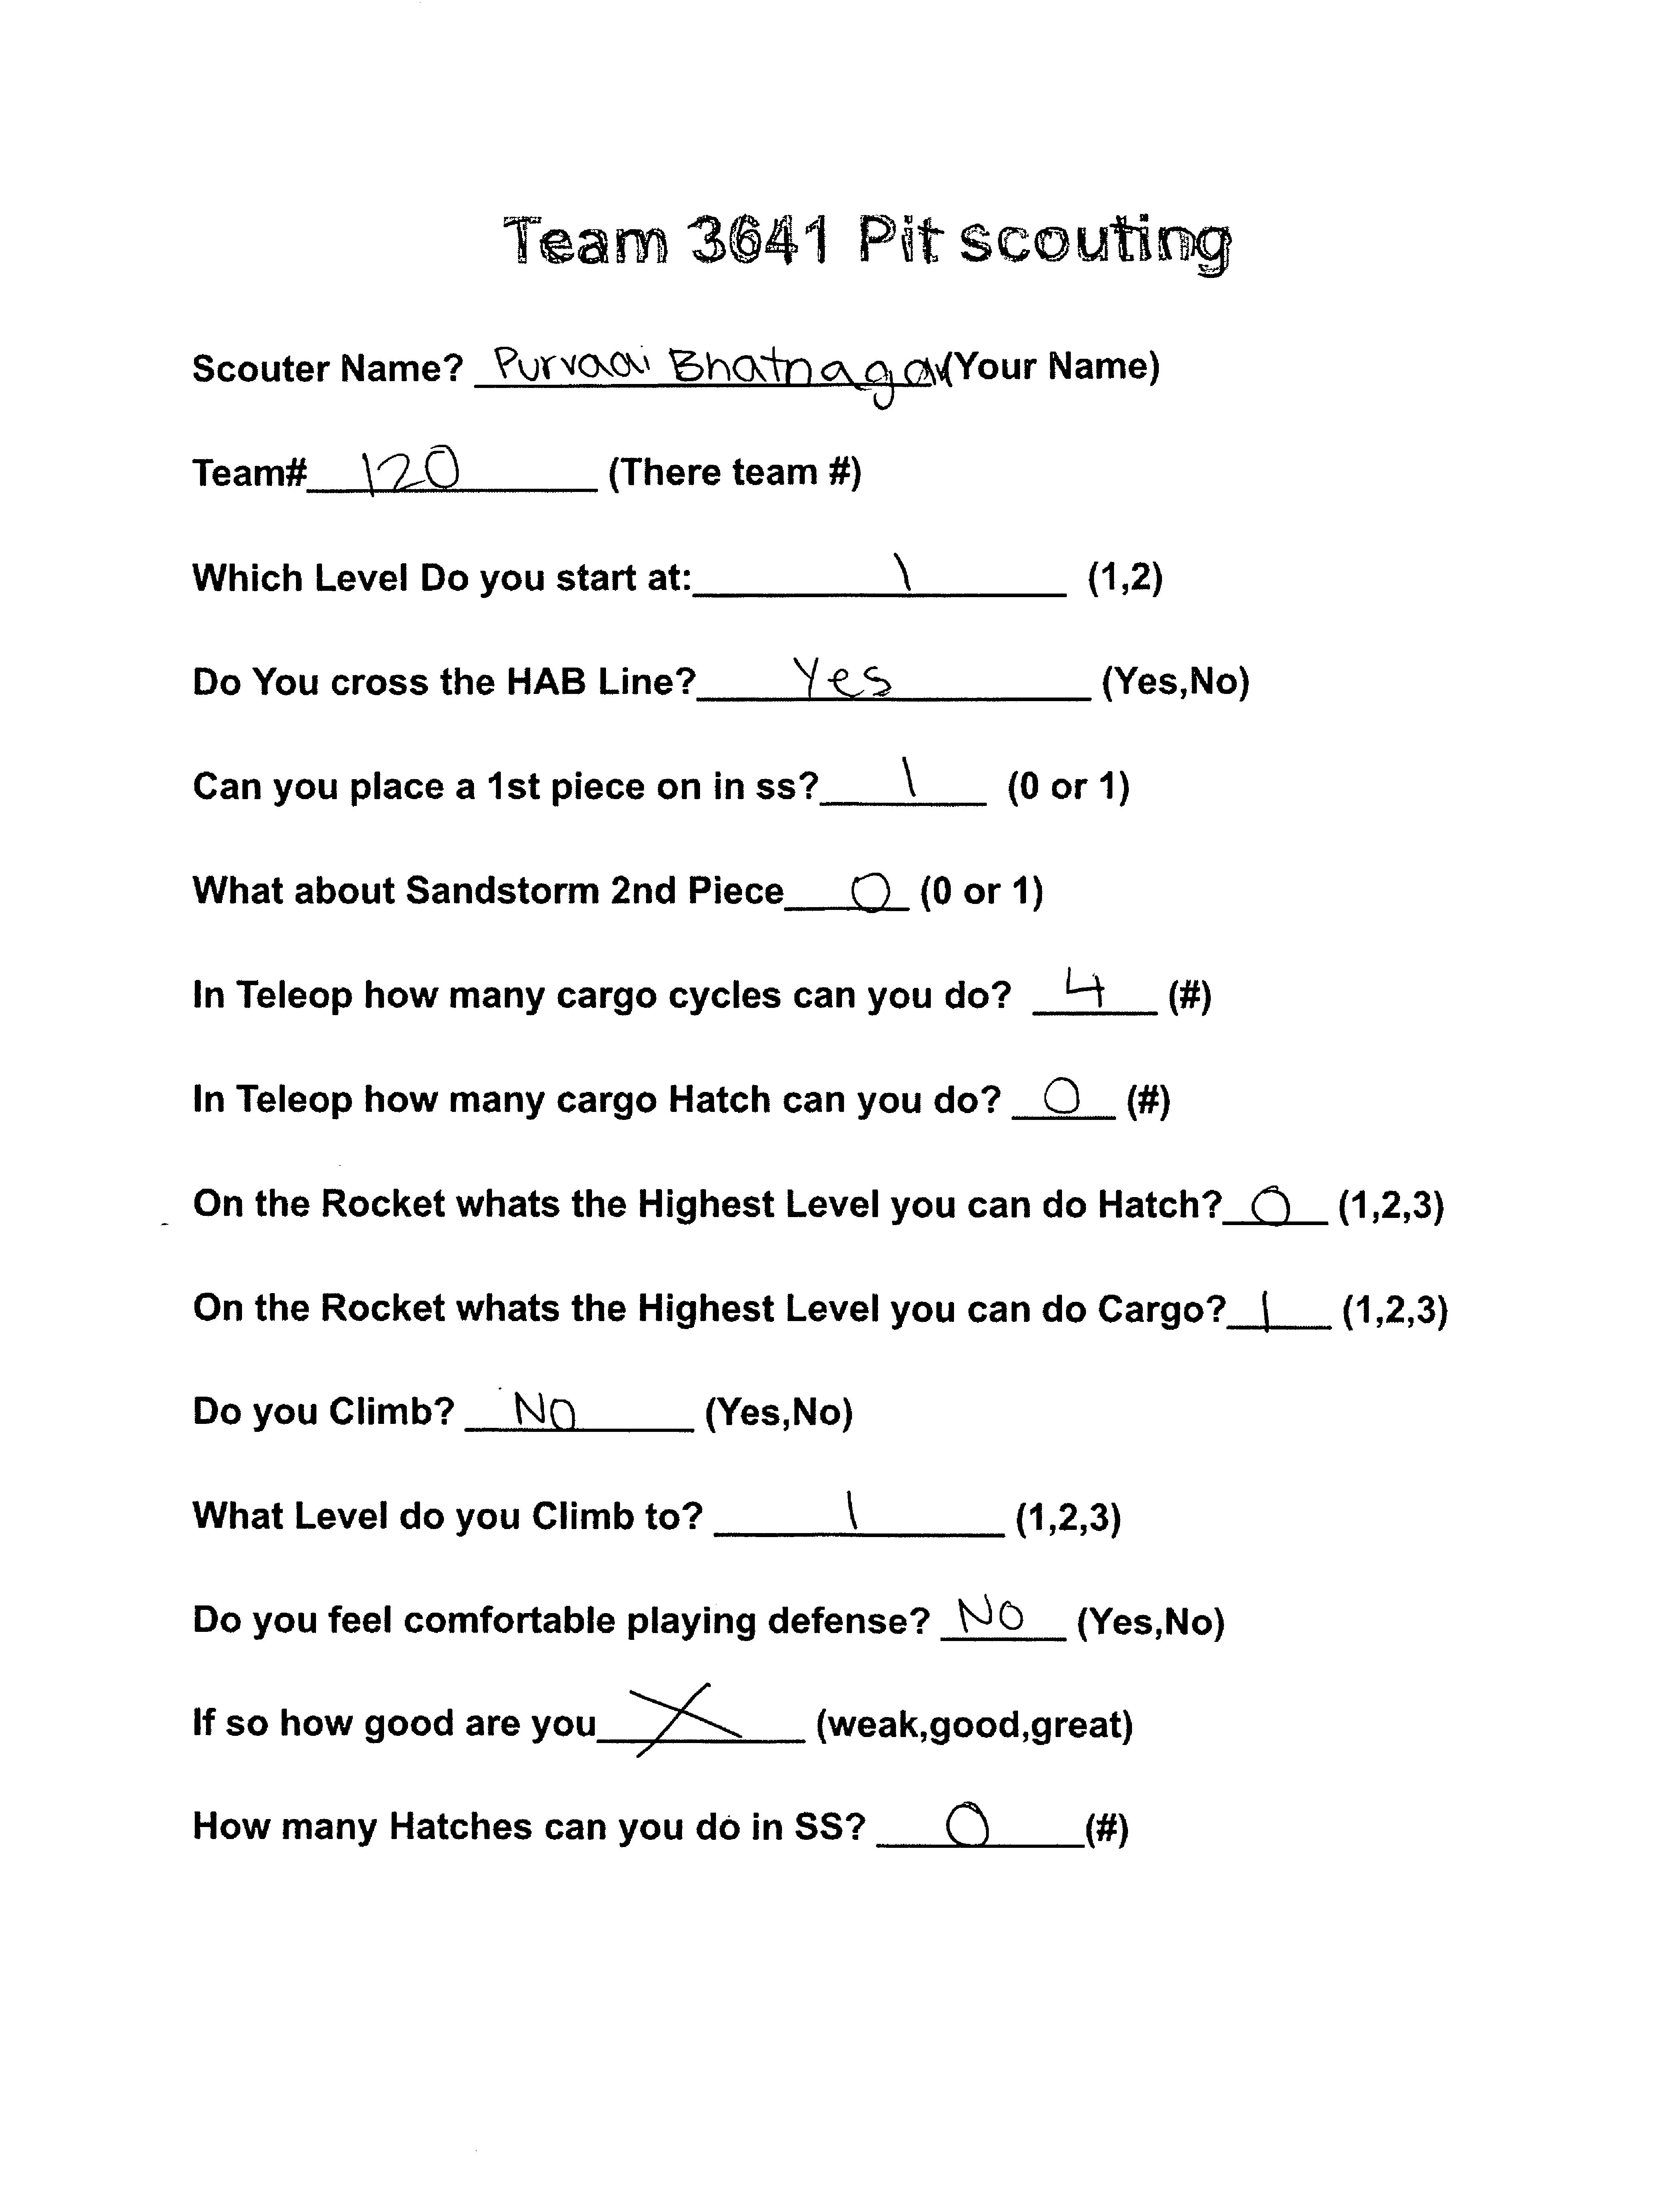 Team 3641 Pit scouting
Scouter Name? Purvaai Bhatnagar (Your Name)
Team# 120 (There team #)
Which Level Do you start at: 1 (1,2)
Do You cross the HAB Line? Yes (Yes,No)
Can you place a 1st piece on in ss? 1 (0 or 1)
What about Sandstorm 2nd Piece 0 (0 or 1)
In Teleop how many cargo cycles can you do? 4 (#)
In Teleop how many cargo Hatch can you do? 0 (#)
On the Rocket whats the Highest Level you can do Hatch? 0 (1,2,3)
On the Rocket whats the Highest Level you can do Cargo? 1 (1,2,3)
Do you Climb? No (Yes,No)
What Level do you Climb to? 1 (1,2,3)
Do you feel comfortable playing defense? No (Yes,No)
If so how good are you X (weak,good,great)
How many Hatches can you do in SS? 0 (#)